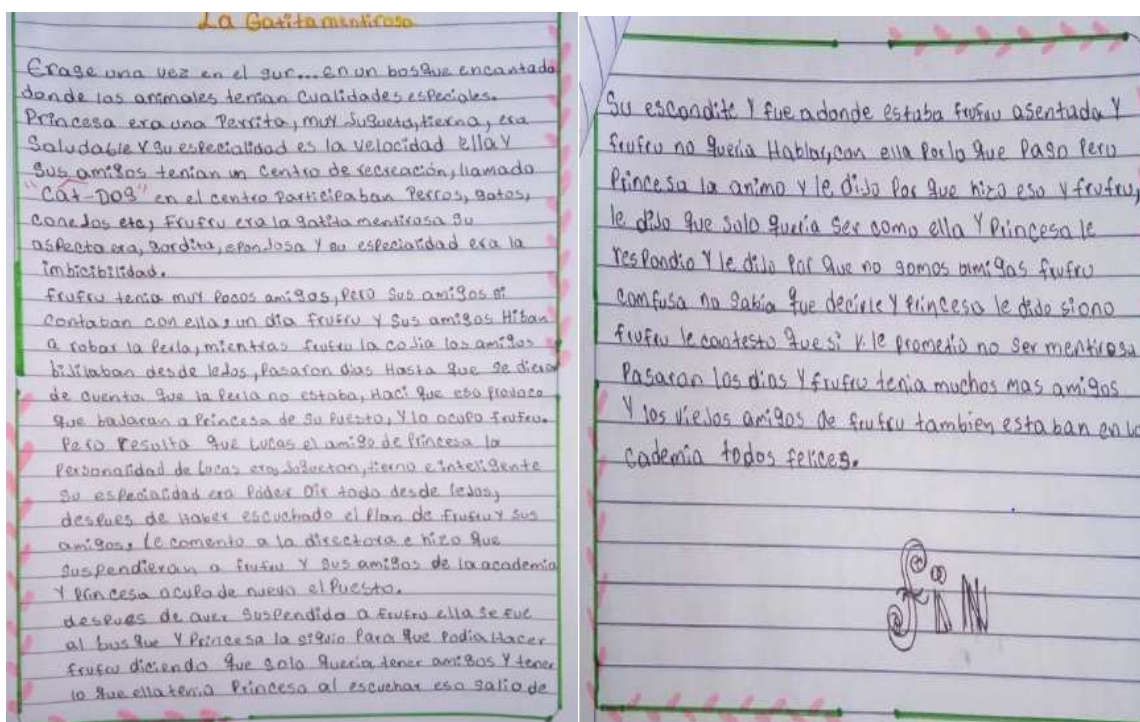 La Gatita mentirosa
Erase una vez en el sur... en un bosque encantado
donde los animales tenian cualidades especiales.
Princesa era una Perrita, muy Jugueta, tierna, era
Saludable Y su especialidad es la velocidad ella Y
Sus amigos tenian un Centro de recreación, llamado
"Cat-Dog" en el centro Participaban Perros, gatos,
conejos etc, Frufru era la gatita mentirosa su
aspecto era, gordita, esponJosa Y su especialidad era la
imbicibilidad.
frufru tenia muy Pocos amigos, Pero Sus amigos si
contaban con ella, un dia frufru Y Sus amigos Hiban
a robar la Perla, mientras frufru la cojia los amigos
bijilaban desde lejos, Pasaron dias Hasta que se dieron
de cuenta que la Perla no estaba, Haci que eso provoco
que bajaran a Princesa de Su Puesto, Y lo ocupo frufru.
Pero resulta que Lucas el amigo de Princesa la
Personalidad de Lucas era, Jogueton, tierno e inteligente
Su especialidad era Poder Oir todo desde lejos,
despues de Haber escuchado el Plan de frufru Y sus
amigos, Le comento a la directora e hizo que
Suspendieran a frufru Y Sus amigos de la academia
Y Princesa ocupa de nuevo el Puesto.
despues de aver Suspendido a frufru ella se fue
al busque Y Princesa la siguio Para que Podia Hacer
frufru diciendo que solo queria tener amigos Y tener
lo que ella tenia Princesa al escuchar eso salio de
Su escondite Y fue a donde estaba frufru asentada Y
frufru no queria Hablar, con ella Por lo que Paso Pero
Princesa la animo Y le dijo Por que hizo eso Y frufru,
le dijo que Solo queria Ser como ella Y Princesa le
respondio Y le dijo Por que no somos amigas frufru
comfusa no Sabia que decirle Y Princesa le dijo si o no
frufru le contesto que si Y le prometio no ser mentirosa
Pasaron los dias Y frufru tenia muchos mas amigos
Y los viejos amigos de frufru tambien estaban en la
cademia todos felices.
FiN